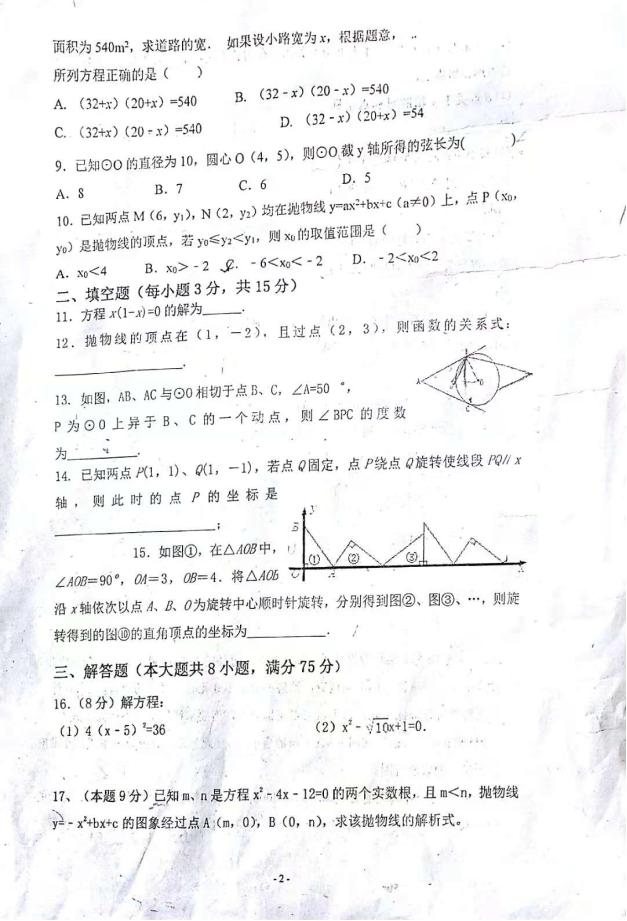 面积为 540m²，求道路的宽． 如果设小路宽为 x，根据题意，
所列方程正确的是（ ）
A. （32+x）(20+x）=540 B. （32-x）(20-x）=540
C. （32+x）(20-x）=540 D. （32-x）(20+x）=54
9．已知⊙O 的直径为 10，圆心 O（4，5），则⊙O 截 y 轴所得的弦长为( )
A．8 B．7 C．6 D．5
10．已知两点 M（6，y₁），N（2，y₂）均在抛物线 y=ax²+bx+c（a≠0）上，点 P（x₀，
y₀）是抛物线的顶点，若 y₀≤y₂<y₁，则 x₀ 的取值范围是（ ）
A．x₀<4 B．x₀>-2 C．-6<x₀<-2 D．-2<x₀<2
二、填空题（每小题 3 分，共 15 分）
11．方程 x(1-x)=0 的解为______．
12．抛物线的顶点在（1，-2），且过点（2，3），则函数的关系式：
______．
13．如图，AB、AC 与⊙O 相切于点 B、C，∠A=50°，
P 为⊙O 上异于 B、C 的一个动点，则∠BPC 的度数
为______．
A
C
14．已知两点 P(1，1)、Q(1，-1)，若点 Q 固定，点 P 绕点 Q 旋转使线段 PQ// x
轴，则此时的点 P 的坐标是
______；
y
B
① ② ③
15．如图①，在△AOB 中，
∠AOB=90°，OA=3，OB=4．将△AOB
沿 x 轴依次以点 A、B、O 为旋转中心顺时针旋转，分别得到图②、图③、…，则旋
转得到的图⑩的直角顶点的坐标为______．
三、解答题（本大题共 8 小题，满分 75 分）
16．（8 分）解方程：
（1）4（x-5）²=36 （2）x²-√10x+1=0.
17、（本题 9 分）已知 m、n 是方程 x²-4x-12=0 的两个实数根，且 m<n，抛物线
y=-x²+bx+c 的图象经过点 A（m，0），B（0，n），求该抛物线的解析式。
-2-